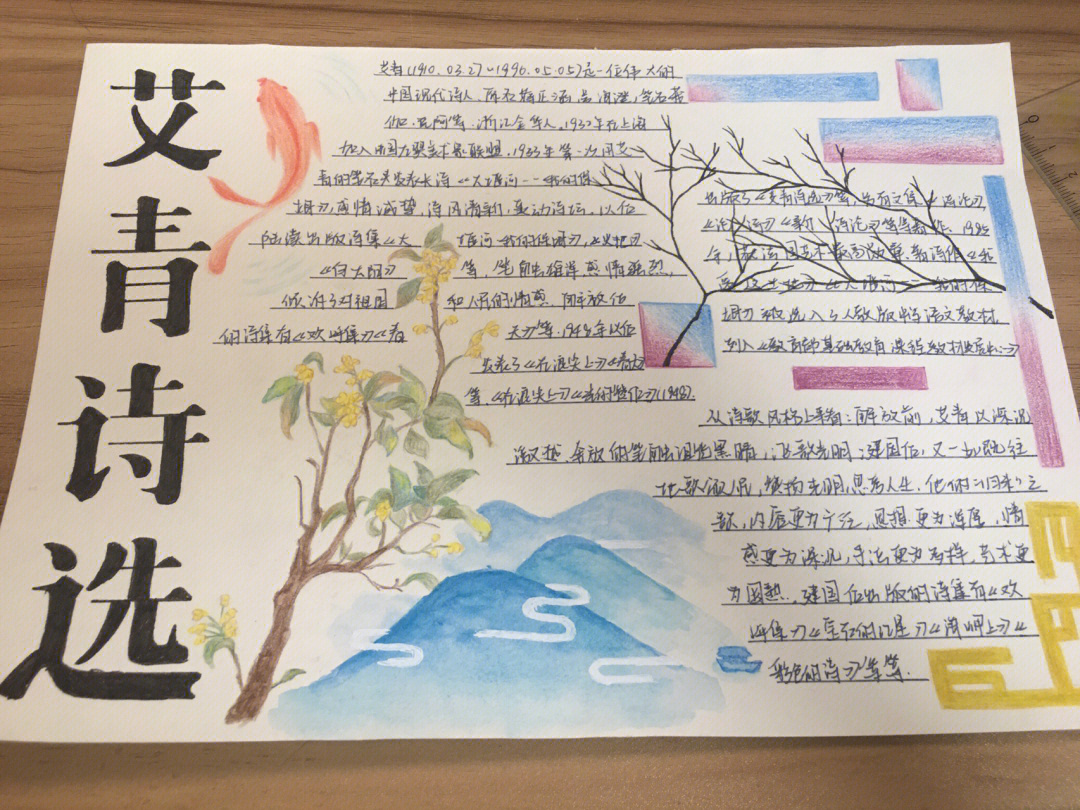 艾青诗选
艾青(1910.03.27~1996.05.05)是一位伟大的
中国现代诗人,原名蒋正涵,号海澄,笔名莪
伽、克阿等,浙江金华人,1932年在上海
加入中国左翼美术家联盟,1933年第一次用艾
青的笔名发表长诗《大堰河——我的保
姆》,感情诚挚,诗风清新,轰动诗坛,以后
陆续出版诗集《大堰河——我的保姆》,《火把》
《向太阳》等,笔触雄浑,感情强烈,
倾诉了对祖国和人民的情感,解放后
的诗集有《欢呼集》《春天》等,1948年以后
发表了《在浪尖上》
等,《在浪尖上》(1948).
出版了《艾青诗选》等,另有文集《诗论》,
《论诗》《新诗论》等著作,1985
年,获法国艺术最高勋章,
《大堰河——我的保
姆》被选入了人教版中学语文教材
列入《教育部基础教育课程教材发展中心》
从诗歌风格上来看:解放前,艾青以深沉
激越,奔放的笔触诅咒黑暗,讴歌光明;建国后,又一如既往
地歌颂人民,赞扬光明,思考人生,他的"归来"之
歌,内容更为广泛,思想更为浑厚,情
感更为深沉,手法更为多样,艺术更
为圆熟,建国后出版的诗集有《欢
呼集》《宝石的红星》《海岬上》《
彩色的诗》等等.